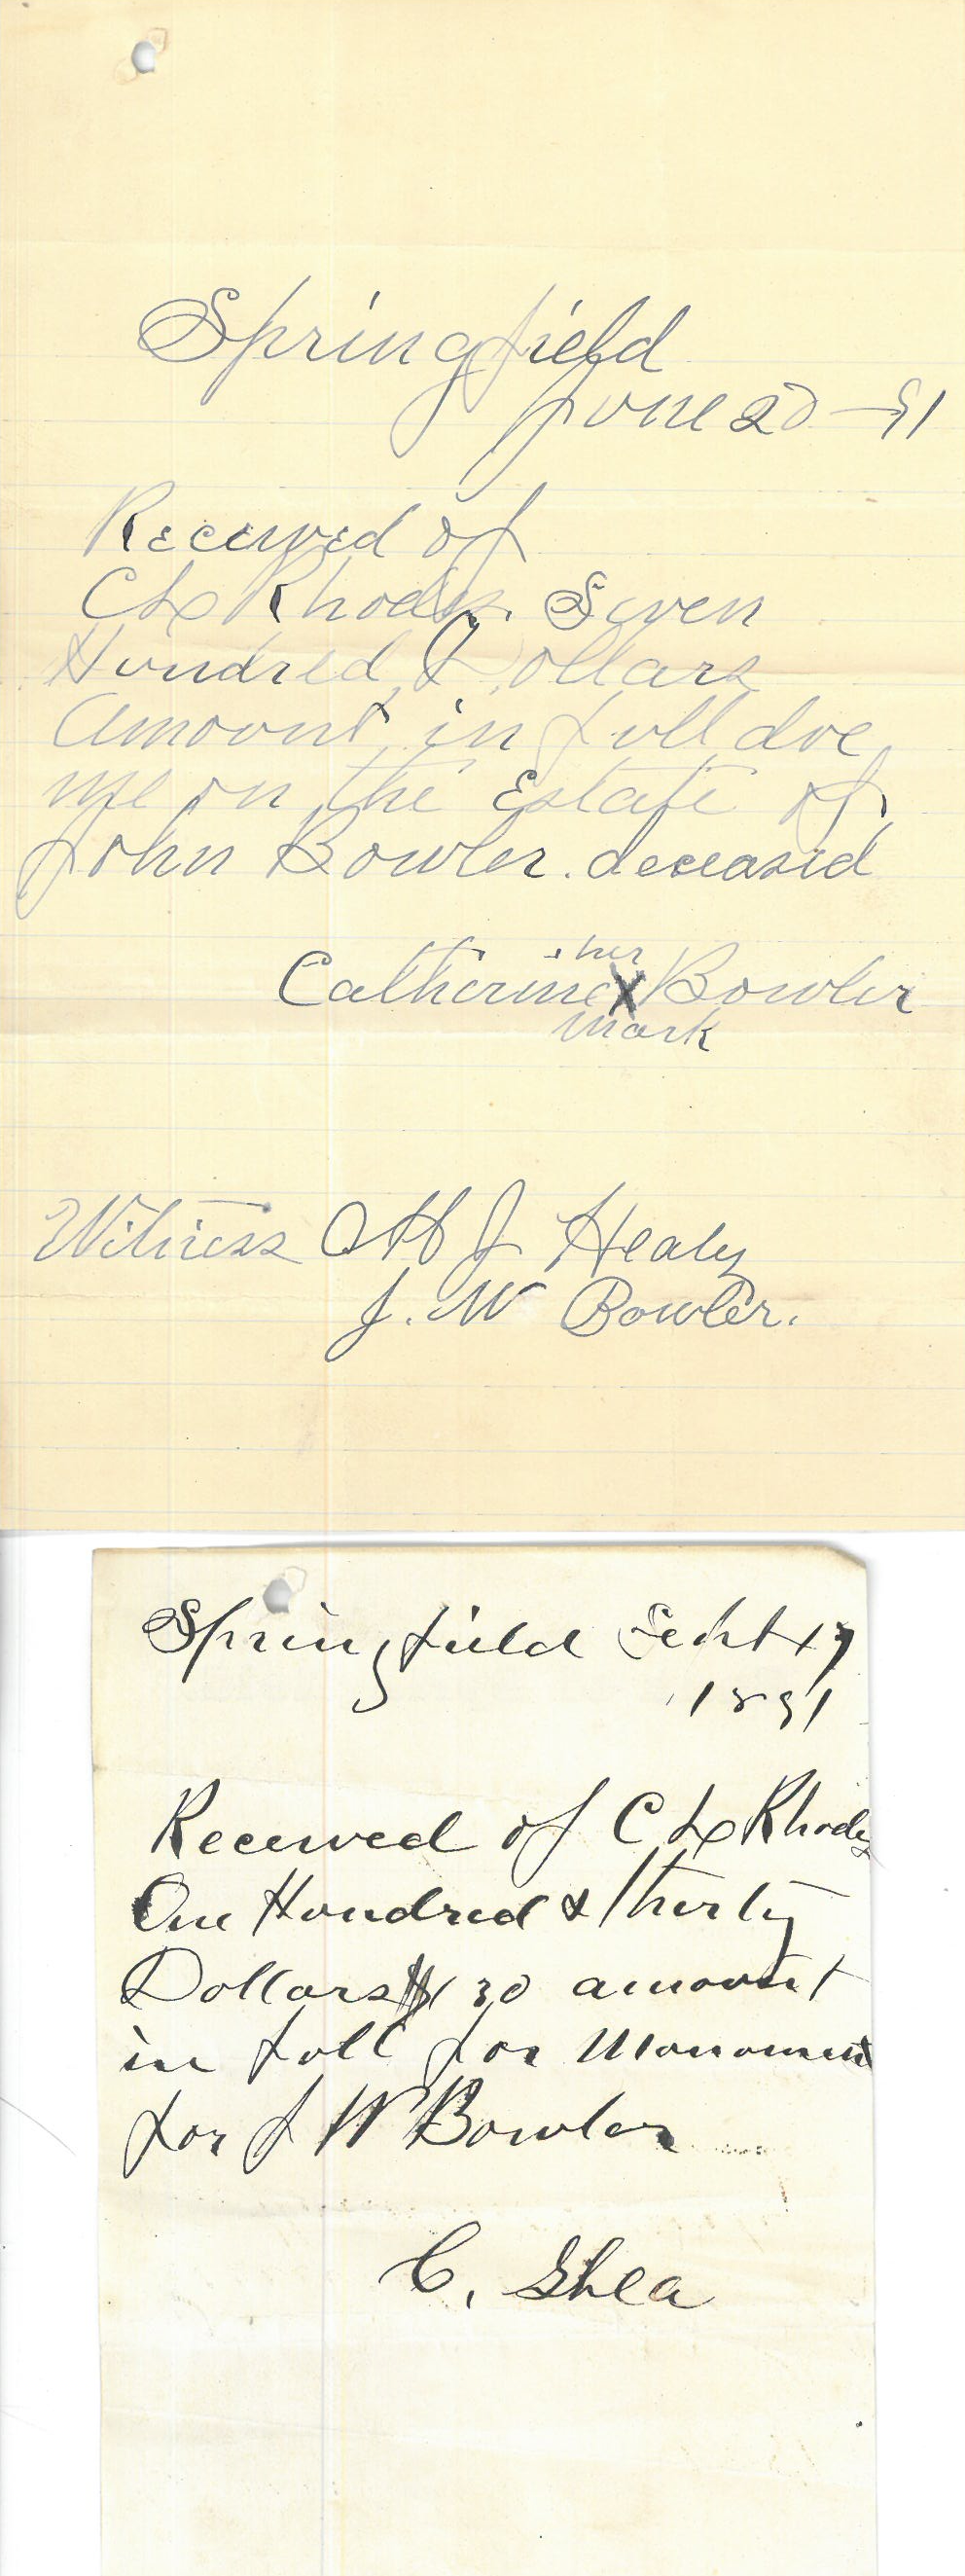 Springfield
June 20 - 91
Received of
C L Rhodes. Seven
Hundred Dollars
Amount in full due
me on the Estate of
John Bowler. deceased
her
Catherine X Bowler
mark
Witness M J Healy
J. W Bowler.
Springfield Sept 17
1891
Received of C L Rhodes
One Hundred & Thirty
Dollars $130 amount
in full for Monument
for J W Bowler
C. Shea